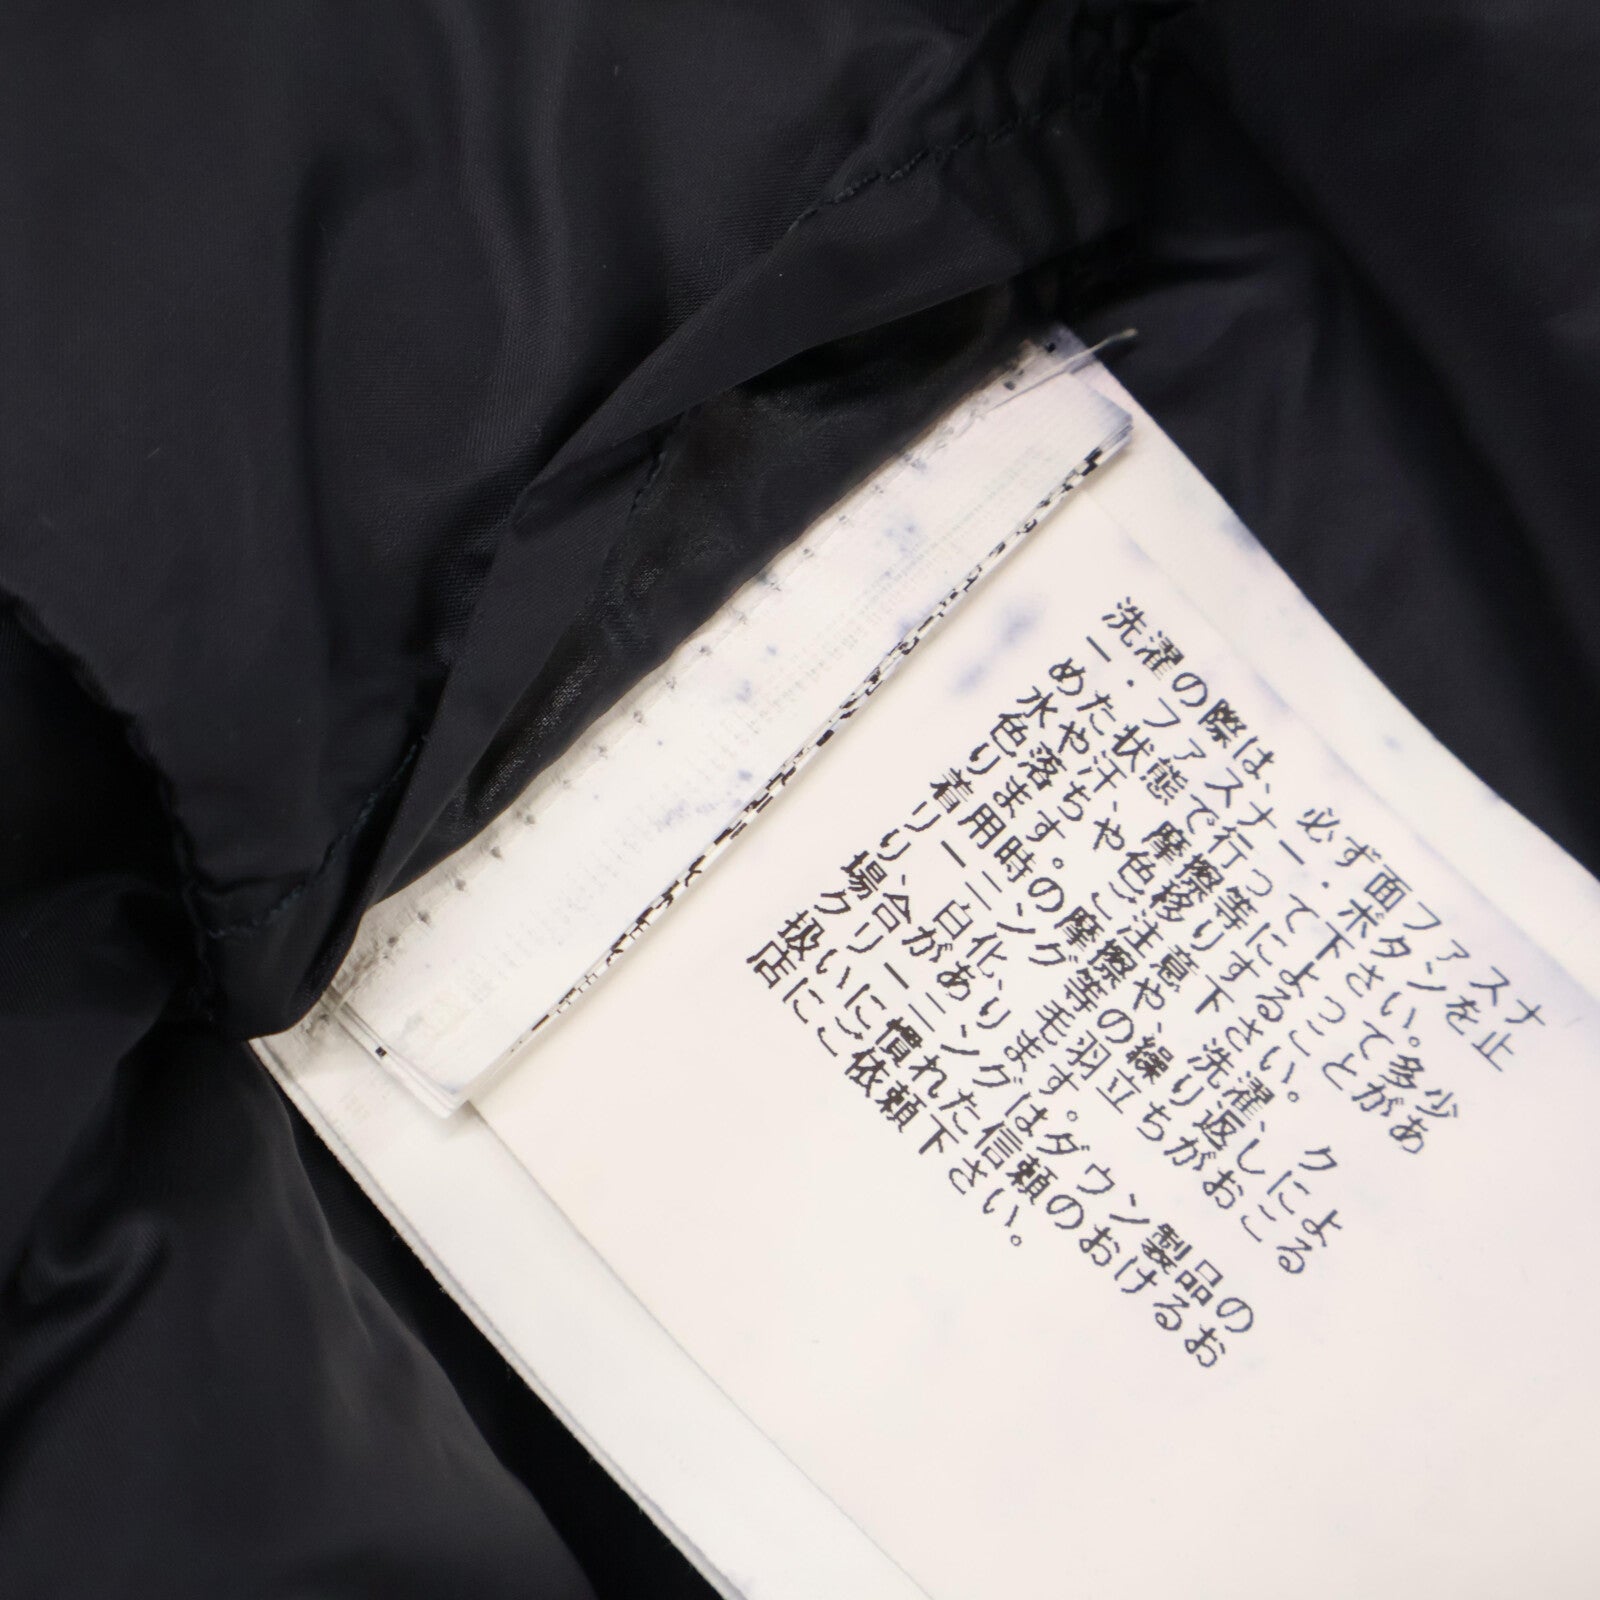 洗濯の際は、必ず面ファスナ
ー・ファスナー・ボタンを止
めた状態で行って下さい。
水や汗、摩擦等によって多少
色落ちや色移りすることがあ
ります。ご注意下さい。
着用時の摩擦や、洗濯、ク
リーニング等の繰り返しによ
り、白化、毛羽立ちがおこる
場合があります。
クリーニングはダウン製品の
扱いに慣れた信頼のおけるお
店にご依頼下さい。